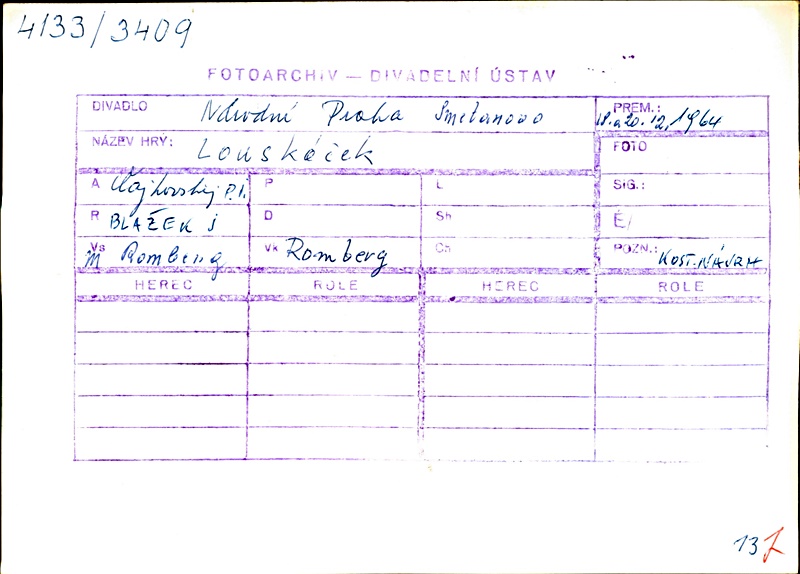 4133/3409
FOTOARCHIV — DIVADELNÍ ÚSTAV
DIVADLO Národní Praha Smetanovo PREM.: 18. a 20. 12. 1964
NÁZEV HRY: Louskáček FOTO
A Čajkovskij P.I. P L SIG.:
R BLAŽEK J D Sh Č/
Vs M Romberg Vk Romberg Ch POZN.: KOST. NÁVRH
HEREC ROLE HEREC ROLE
13